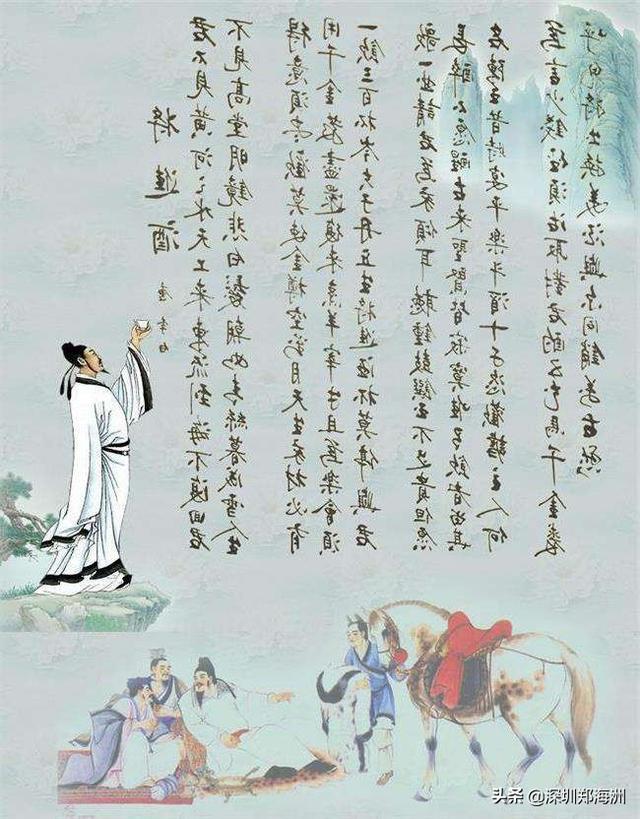 將進酒
唐 李白
君不見黃河之水天上來東流到海不復回君
不見高堂明鏡悲白髮朝如青絲暮成雪人生
得意須盡歡莫使金樽空對月天生我材必有
用千金散盡還復來烹羊宰牛且為樂會須
一飲三百杯岑夫子丹丘生將進酒杯莫停與君
歌一曲請君為我傾耳聽鐘鼓饌玉不足貴但願
長醉不願醒古來聖賢皆寂寞惟有飲者留其
名陳王昔時宴平樂斗酒十千恣歡謔主人何
為言少錢徑須沽取對君酌五花馬千金裘
呼兒將出換美酒與爾同銷萬古愁
头条 @深圳郑海洲